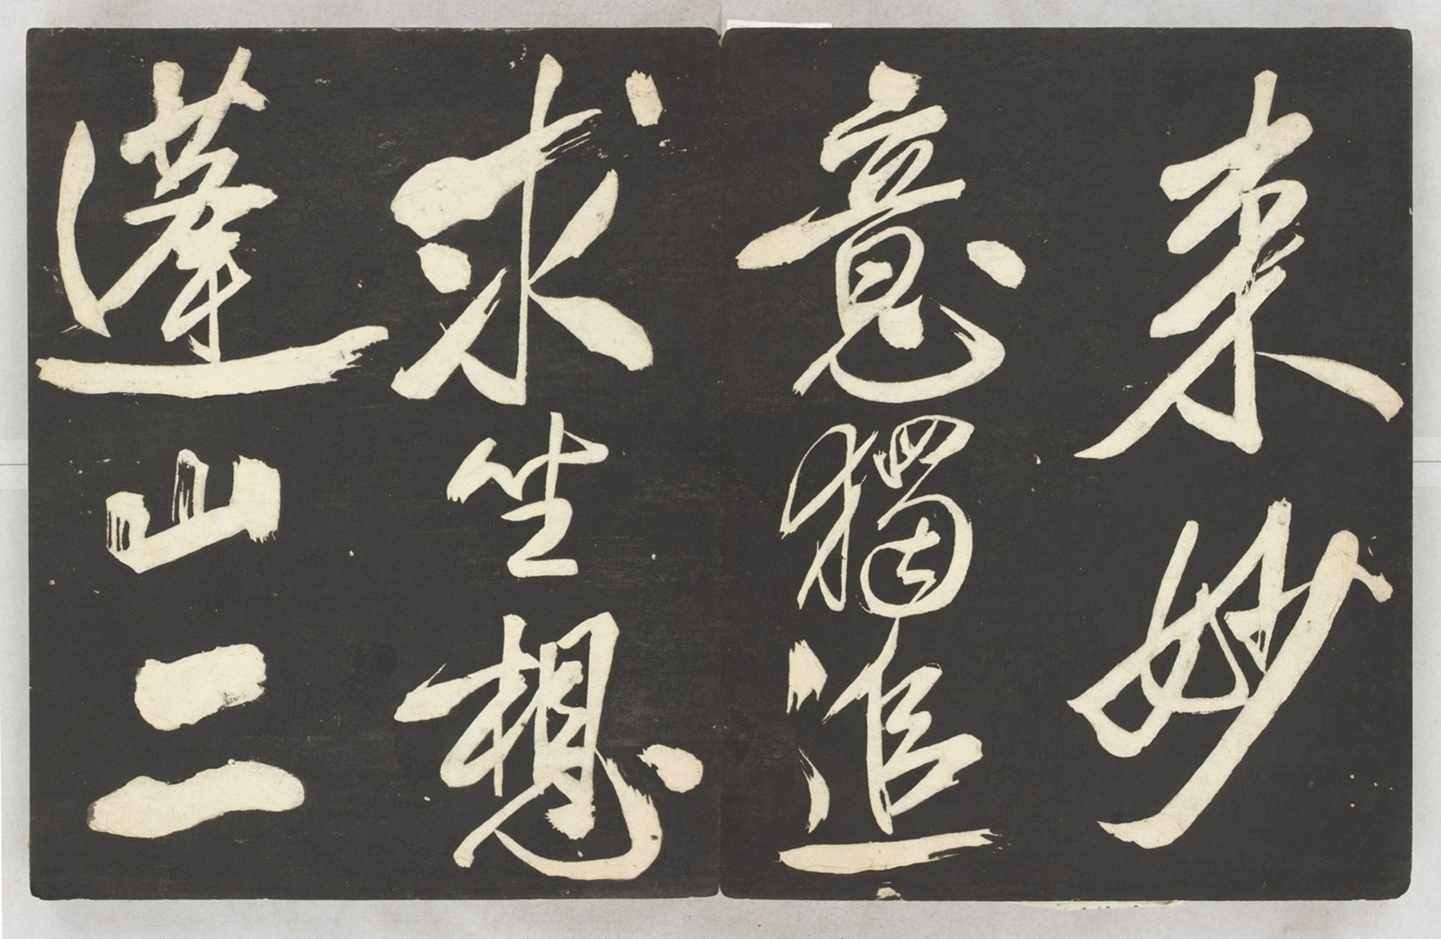 來妙
意獨追
求坐想
蓬山二